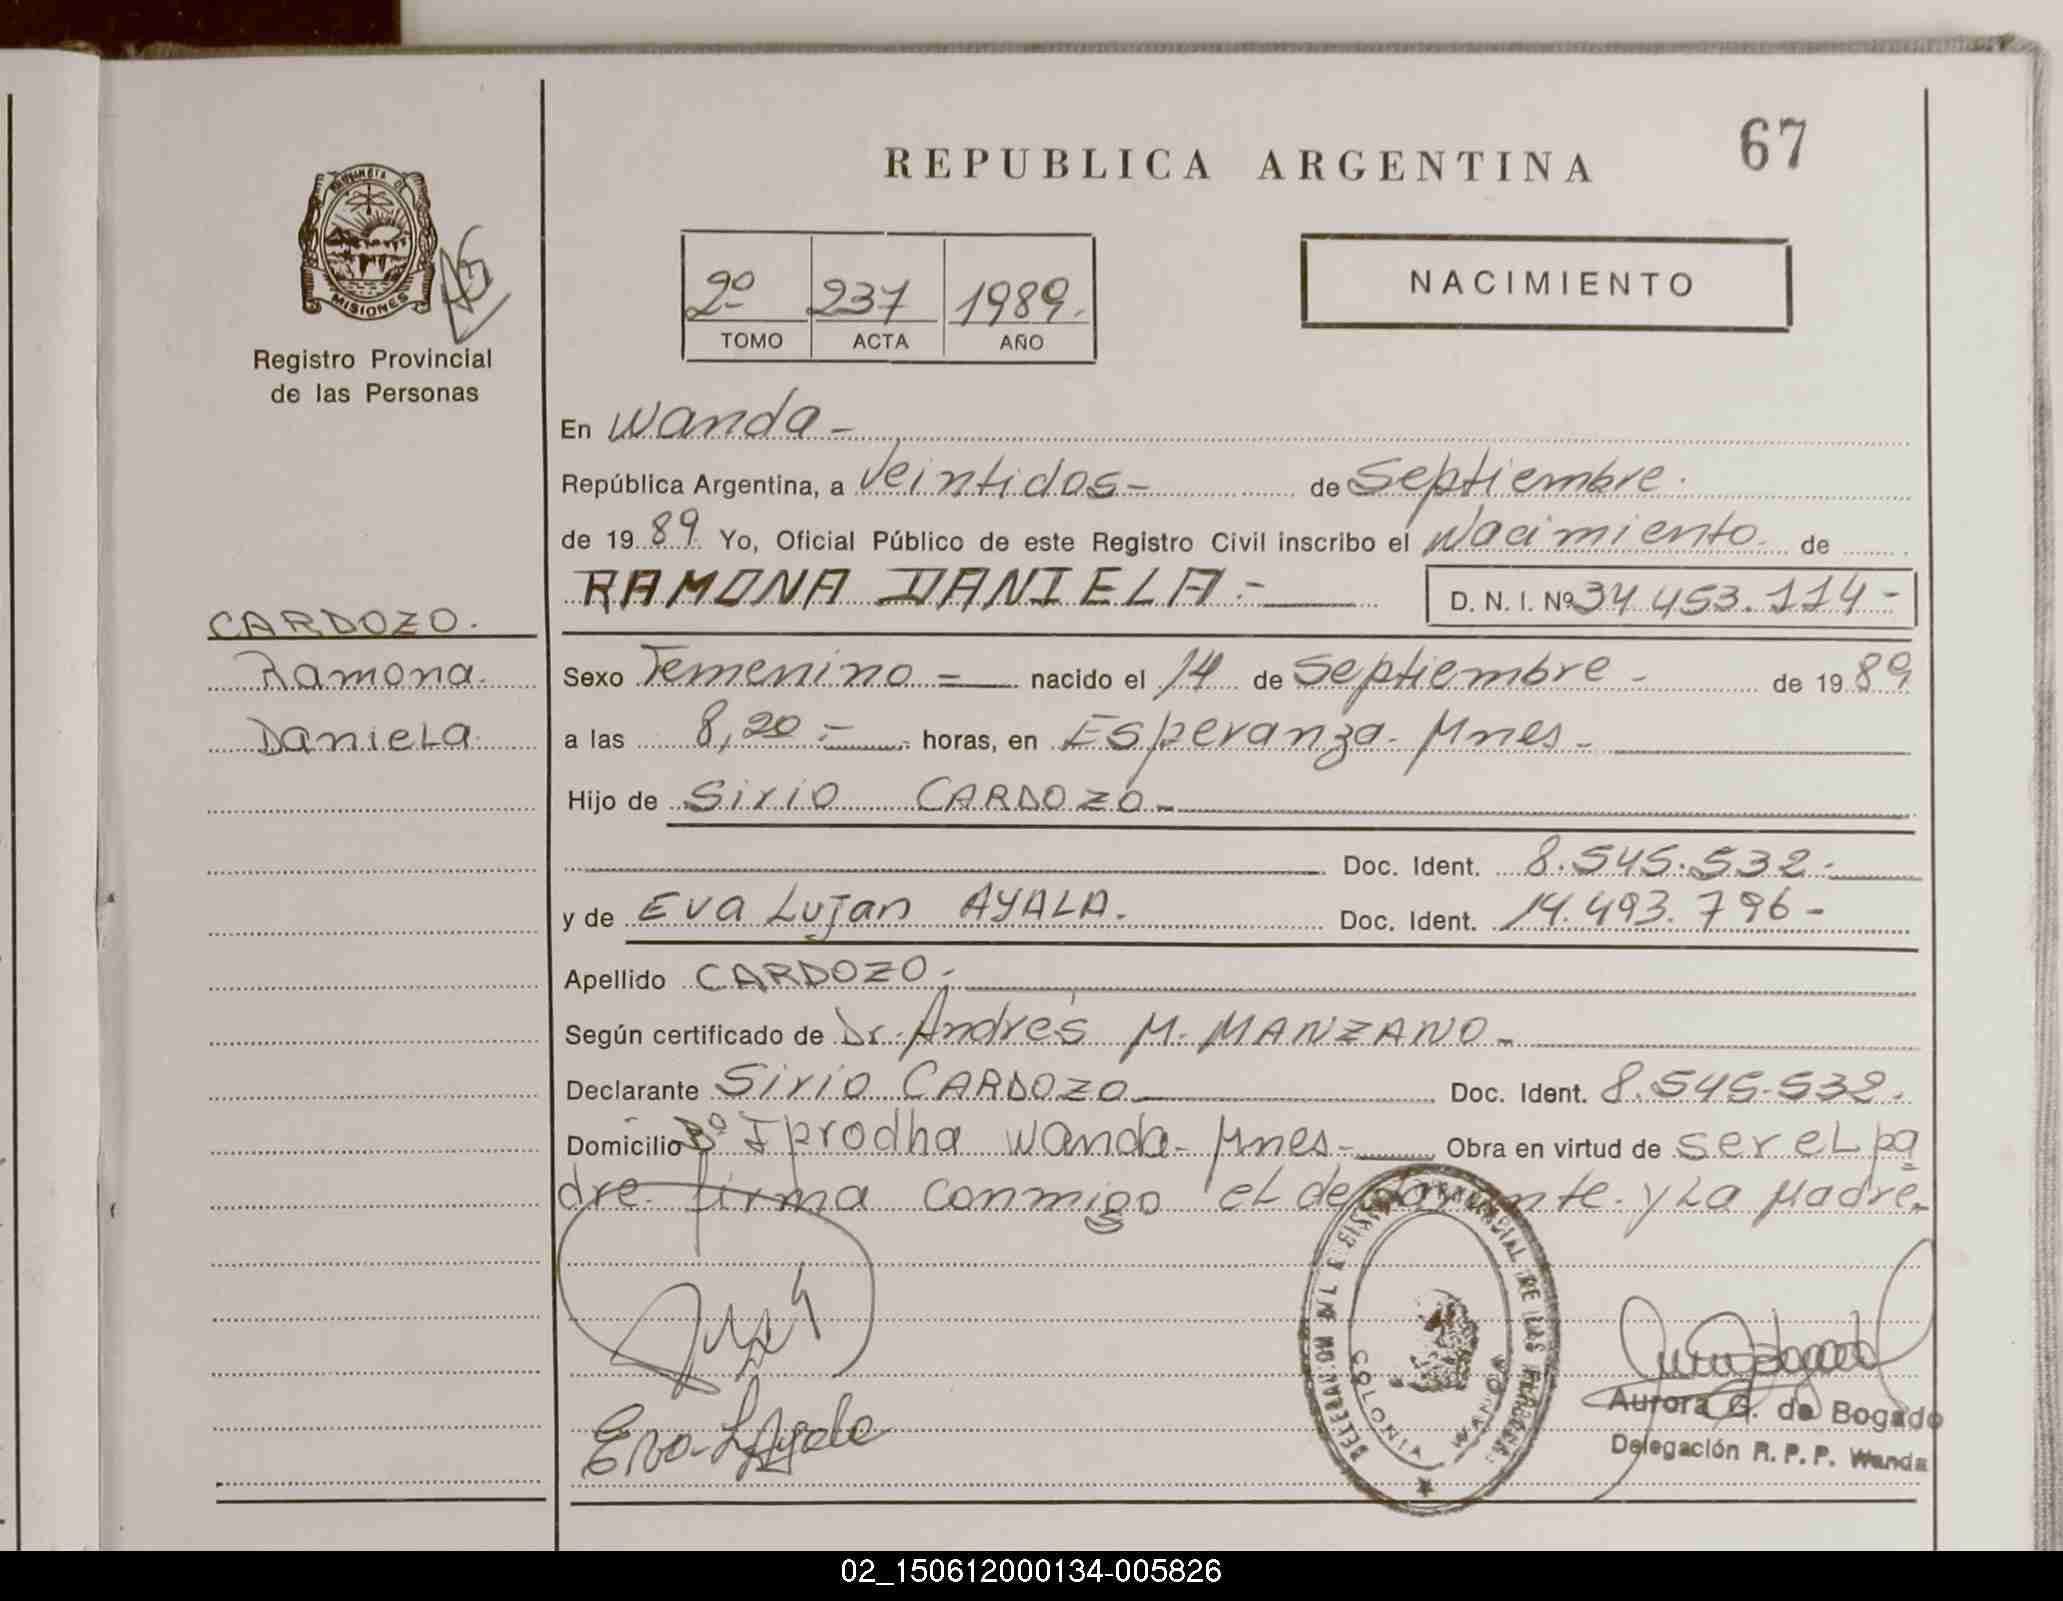 67
REPUBLICA ARGENTINA
PROVINCIA DE
MISIONES
Registro Provincial
de las Personas
2º 237 1989.
TOMO ACTA AÑO
NACIMIENTO
En Wanda -
República Argentina, a Veintidos - de Septiembre.
de 19 89 Yo, Oficial Público de este Registro Civil inscribo el Nacimiento de
RAMONA DANIELA.- D. N. I. Nº 34.453.114-
CARDOZO.
Ramona
Daniela
Sexo Femenino = nacido el 14 de Septiembre - de 19 89
a las 8,20.- horas, en Esperanza- Mnes -
Hijo de Sirio CARDOZO -
Doc. Ident. 8.545.532.-
y de Eva Lujan AYALA. Doc. Ident. 14.493.796 -
Apellido CARDOZO.-
Según certificado de Dr. Andrés M. MANZANO -
Declarante Sirio CARDOZO Doc. Ident. 8.545.532.
Domicilio Bº Iprodha Wanda- Mnes- Obra en virtud de ser el pa
dre. firma conmigo el declarante. y La Madre.
Eva L Ayala
COLONIA WANDA
Aurora G. de Bogado
Delegación R. P. P. Wanda
02_150612000134-005826